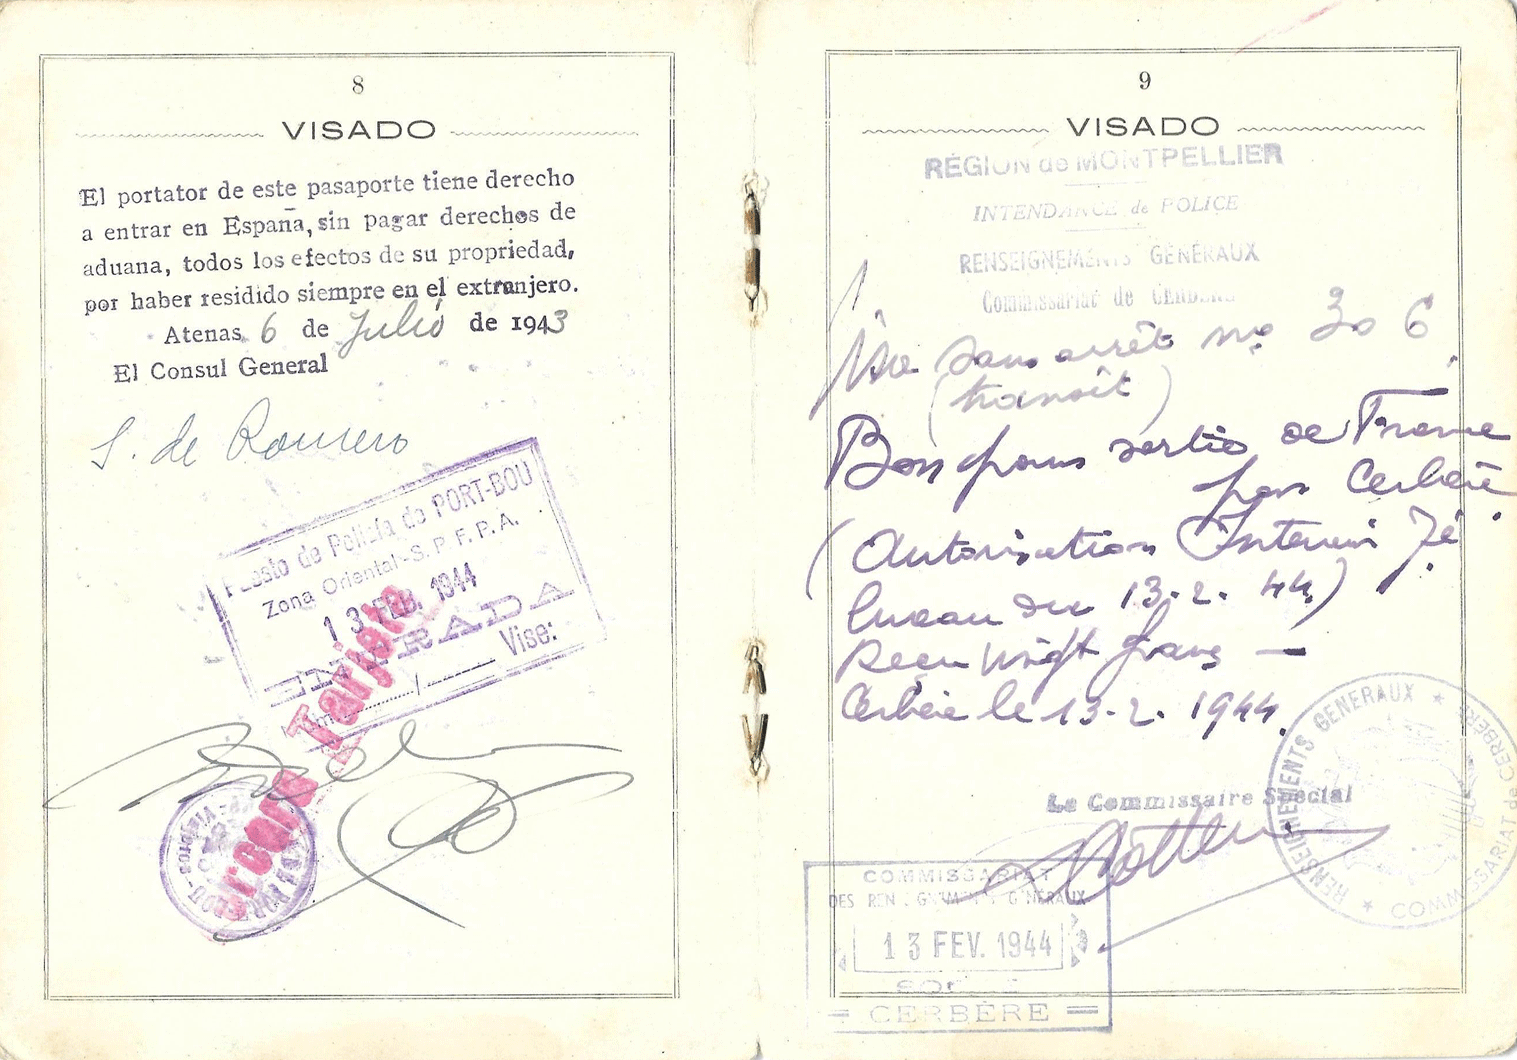 8
VISADO
El portator de este pasaporte tiene derecho
a entrar en España, sin pagar derechos de
aduana, todos los efectos de su propriedad,
por haber residido siempre en el extranjero.
Atenas 6 de Julio de 1943
El Consul General
S. de Romero
Puesto de Policía de PORT-BOU
Zona Oriental-S.P.F.P.A.
13 FEB. 1944
ENTRADA
Vise:
Tarjeta
9
VISADO
RÉGION de MONTPELLIER
INTENDANCE de POLICE
RENSEIGNEMENTS GÉNÉRAUX
Commissariat de CERBÈRE
Vise sans arrêt no 306
(transit)
Bon pour sortie de France
par Cerbère
(Autorisation Interieur 7è
bureau du 13.2.44)
Reçu vingt francs —
Cerbère le 13.2.1944.
Le Commissaire Spécial
RENSEIGNEMENTS GENERAUX ★
COMMISSARIAT de CERBÈRE ★
COMMISSARIAT
DES RENSEIGNEMENTS GÉNÉRAUX
13 FEV. 1944
SORTIE
= CERBÈRE =